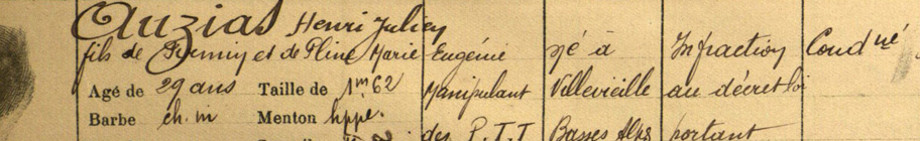 Auzias Henri Julien
fils de Firmin et de Pline Marie Eugénie né à Infraction Cond né
Agé de 29 ans Taille de 1m 62 Manipulant Villevieille au décret loi
Barbe ch. m Menton hppe. des P.T.T Basses Alpes portant